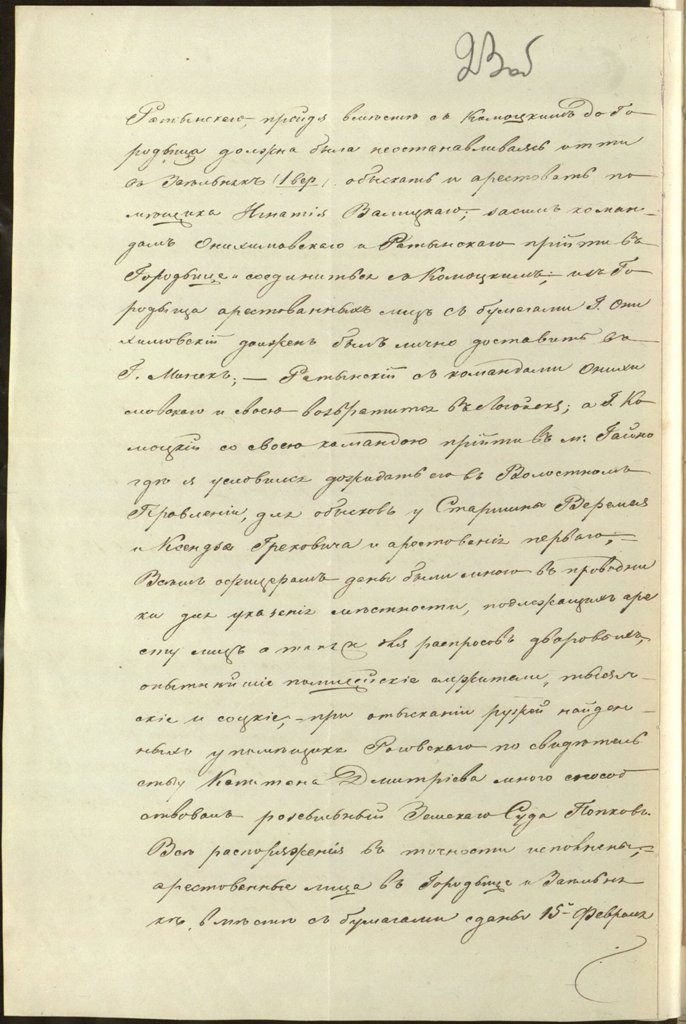 23 об
Ратынскаго, пройдя вместѣ съ Комоцкимъ до Го-
родьища должна была неостанавливаясь итти
въ Затьльнахъ (1 вер) обыскать и арестовать по-
мѣщика Игнатія Валицкаго; засимъ коман-
дамъ Онихимовскаго и Ратынскаго прійти въ
Городьище и соединиться съ Комоцкимъ; изъ Го-
родьища арестованныхъ лицъ съ бумагами Г. Они-
химовскій долженъ былъ лично доставить въ
Г. Минскъ; — Ратынскій съ командами Онихи-
мовскаго и своею возвратится въ Логойскъ; а Г. Ко-
моцкій со своею командою прійти въ м: Гайно
гдѣ я условился дожидать его въ Волостномъ
Правленіи, для обысковъ у Старшины Веремея
и Ксендза Греховича и арестованія перваго; —
Всѣмъ офицерамъ даны были мною въ проводни-
ки для указанія мѣстности, подлежащихъ аре-
сту лицъ а также для распросовъ дворовыхъ,
опытнѣйшіе полицейскіе служители, тысяч-
скіе и соцкіе; — при отысканіи ружей найден-
ныхъ у помѣщика Росовскаго по свидѣтель-
ству Капитана Дмитріева много способ-
ствовалъ розсыльный Земскаго Суда Попковъ.
Всѣ распоряженія въ точности исполнены, —
арестованные лица въ Городьище и Затьльна-
хъ, вместѣ съ бумагами сданы 15-го Февраля